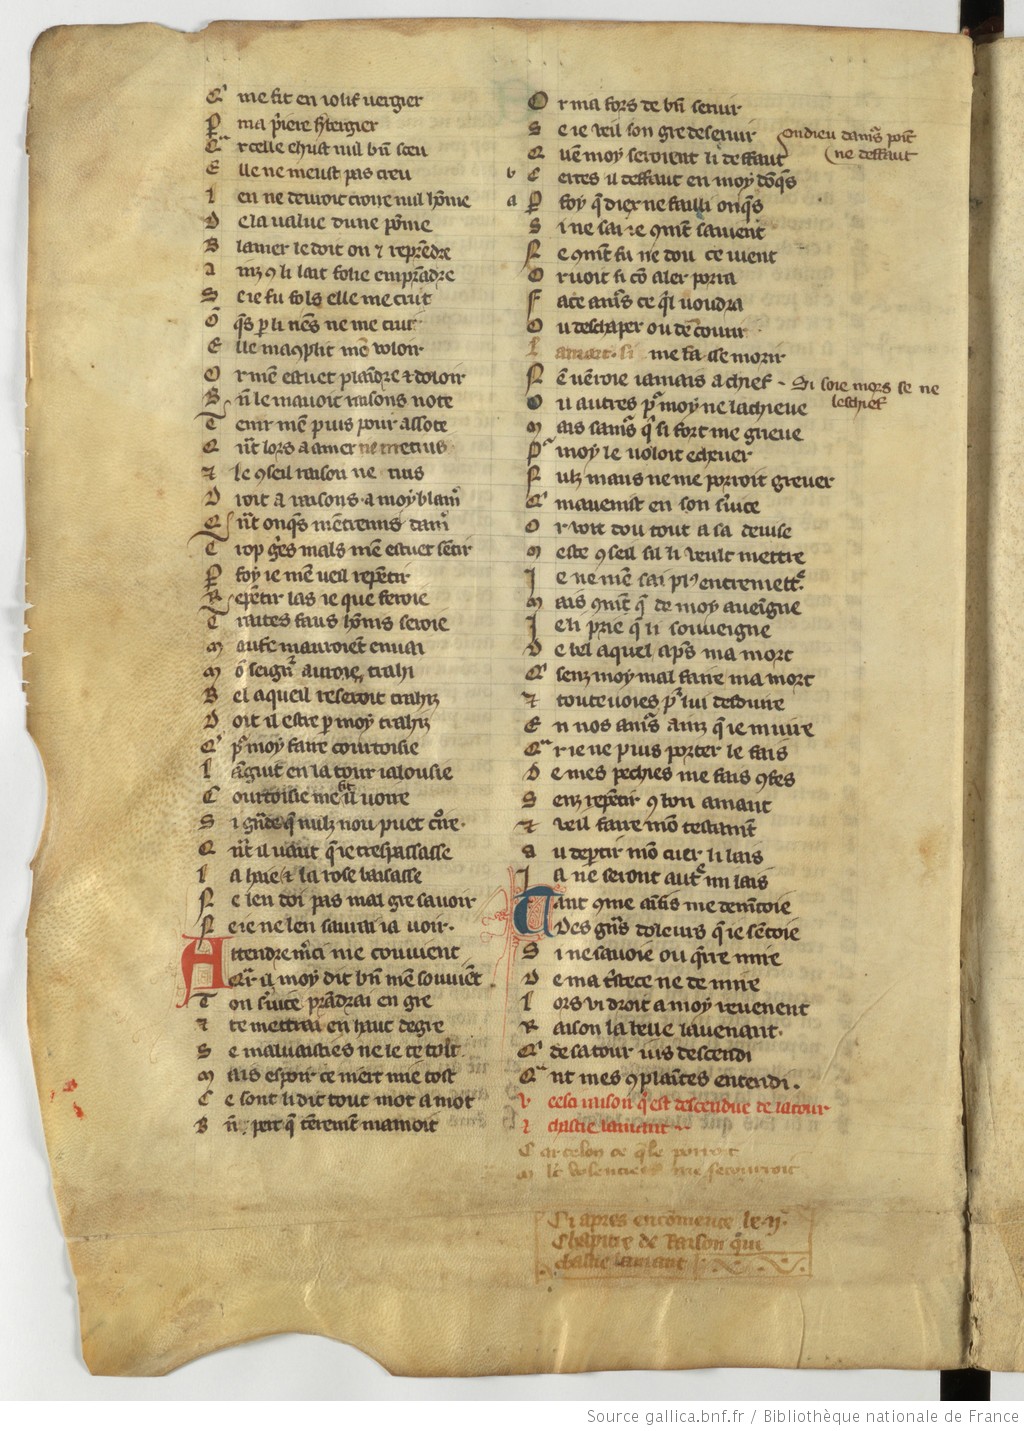 E me fit en iolif vergier
P ma p̾iere h̾bergier
C r celle eh̾ust mil bn̄ seeu
E lle ne meust pas creu
I en ne deuroit croire nul hōme
D e la value dune pōme
B lamer le doit on ⁊ repr̄endre
A inz ꝯ li lait folie empr̄andre
S e ie fu fols elle me crut
O q̄s p li nēs ne me crut
E lle macoplit mē voloir
O r mē estuet plaīdre ⁊ doloir
B n̄ le mauoit raisons note
T enir mē puis pour assote
Q n̄t lors a amer ne me
⁊ le ꝯseil raison ne crus
D roit a raisons a moy blam̄
Q n̄t onq̄s mētremis dam̄
T rop gēs mals mē estuet sētir
P foy ie mē veil repētir
R epētir las ie que feroie
T raites faus hōnis seroie
M aufe mauroiēt enuai
M ō seign̄ auroie trahi
B el aqueil reseroit trahiz
D oit il estre p moy trahiz
Q p̄ moy faire courtoisie
L āguit en la tour ialousie
C ourtoisie me fit voire
S i grāde q̄ nulz nou puet croire
Q n̄t il vaut q̄ ie trespassasse
L a haie ⁊ la rose baisasse
N e len doi pas mal gre sauoir
N e ie ne len saurai ia voir.
A ttendre m̄ci me couuient
Q r il moy dit bn̄ mē souuiēt
T on s̄uice prādrai en gre
⁊ te mettrai en haut degre
S e maluaisties ne le te tolt
M ais espoir ce niert mie tost
C e sont li dit tout mot a mot
B n̄ pert q̄ tēremēt mamoit
O r ma fors de bn̄ seruir
S e ie veil son gre deseruir
Q uē moy seroient li deffaut
ou dieu dam̄s poit
ne deffaut
b C ertes il deffaut en moy dōq̄s
a P foy q̄ diex ne failli onq̄s
S i ne sai ie ꝯmēt sauient
N e ꝯmēt fu ne dou ce vient
O r voit si cō aler porra
F ace am̄s ce q̄l voudra
O u deschaper ou de courir
L amāt. si me fasse morir
N ē vēroie iamais a chief - Si soie mors se ne
leschief
O u autres p̄ moy ne lachieue
M ais sam̄s q̄ si fort me grieue
P moy le voloit echeuer
N ulz maus ne me porroit greuer
Q mauenist en son s̄uice
O r voit dou tout a sa deuise
M este ꝯseil sil li veult mettre
J e ne mē sai plꝰ entremettre
M ais ꝯmēt q̄ de moy auēigne
J e li prie q̄ li souueigne
D e bel aquel ap̄s ma mort
Q senz moy mal faire ma mort
⁊ toute voies p̄ lui desduire
E n nos am̄s ainz q̄ ie muire
Q r ie ne puis porter le fais
D e mes pechies me fais ꝯfes
S enz repētir ꝯ lon amant
⁊ veil faire mō testamēt
A u departir mō cuer li lais
J a ne seront autre mi lais
T ant ꝯme ainsis me demētoie
Des grās doleurs q̄ ie sētoie
S i ne sauoie ou q̄rre mire
D e ma tristece ne de mire
L ors vi droit a moy reuenent
R aison la belle lauenant
Q de sa tour ius descendi
Q nt mes ꝯplaītes entendi.
V eesci raison q̄ est descendue de la tour
⁊ chastie lamant
C ar selon ce q̄le porroit
M lt volentiers me secourroit
Ci apres encōmence le ij.
Chapitre de Raison q̄ui
chastie lamant